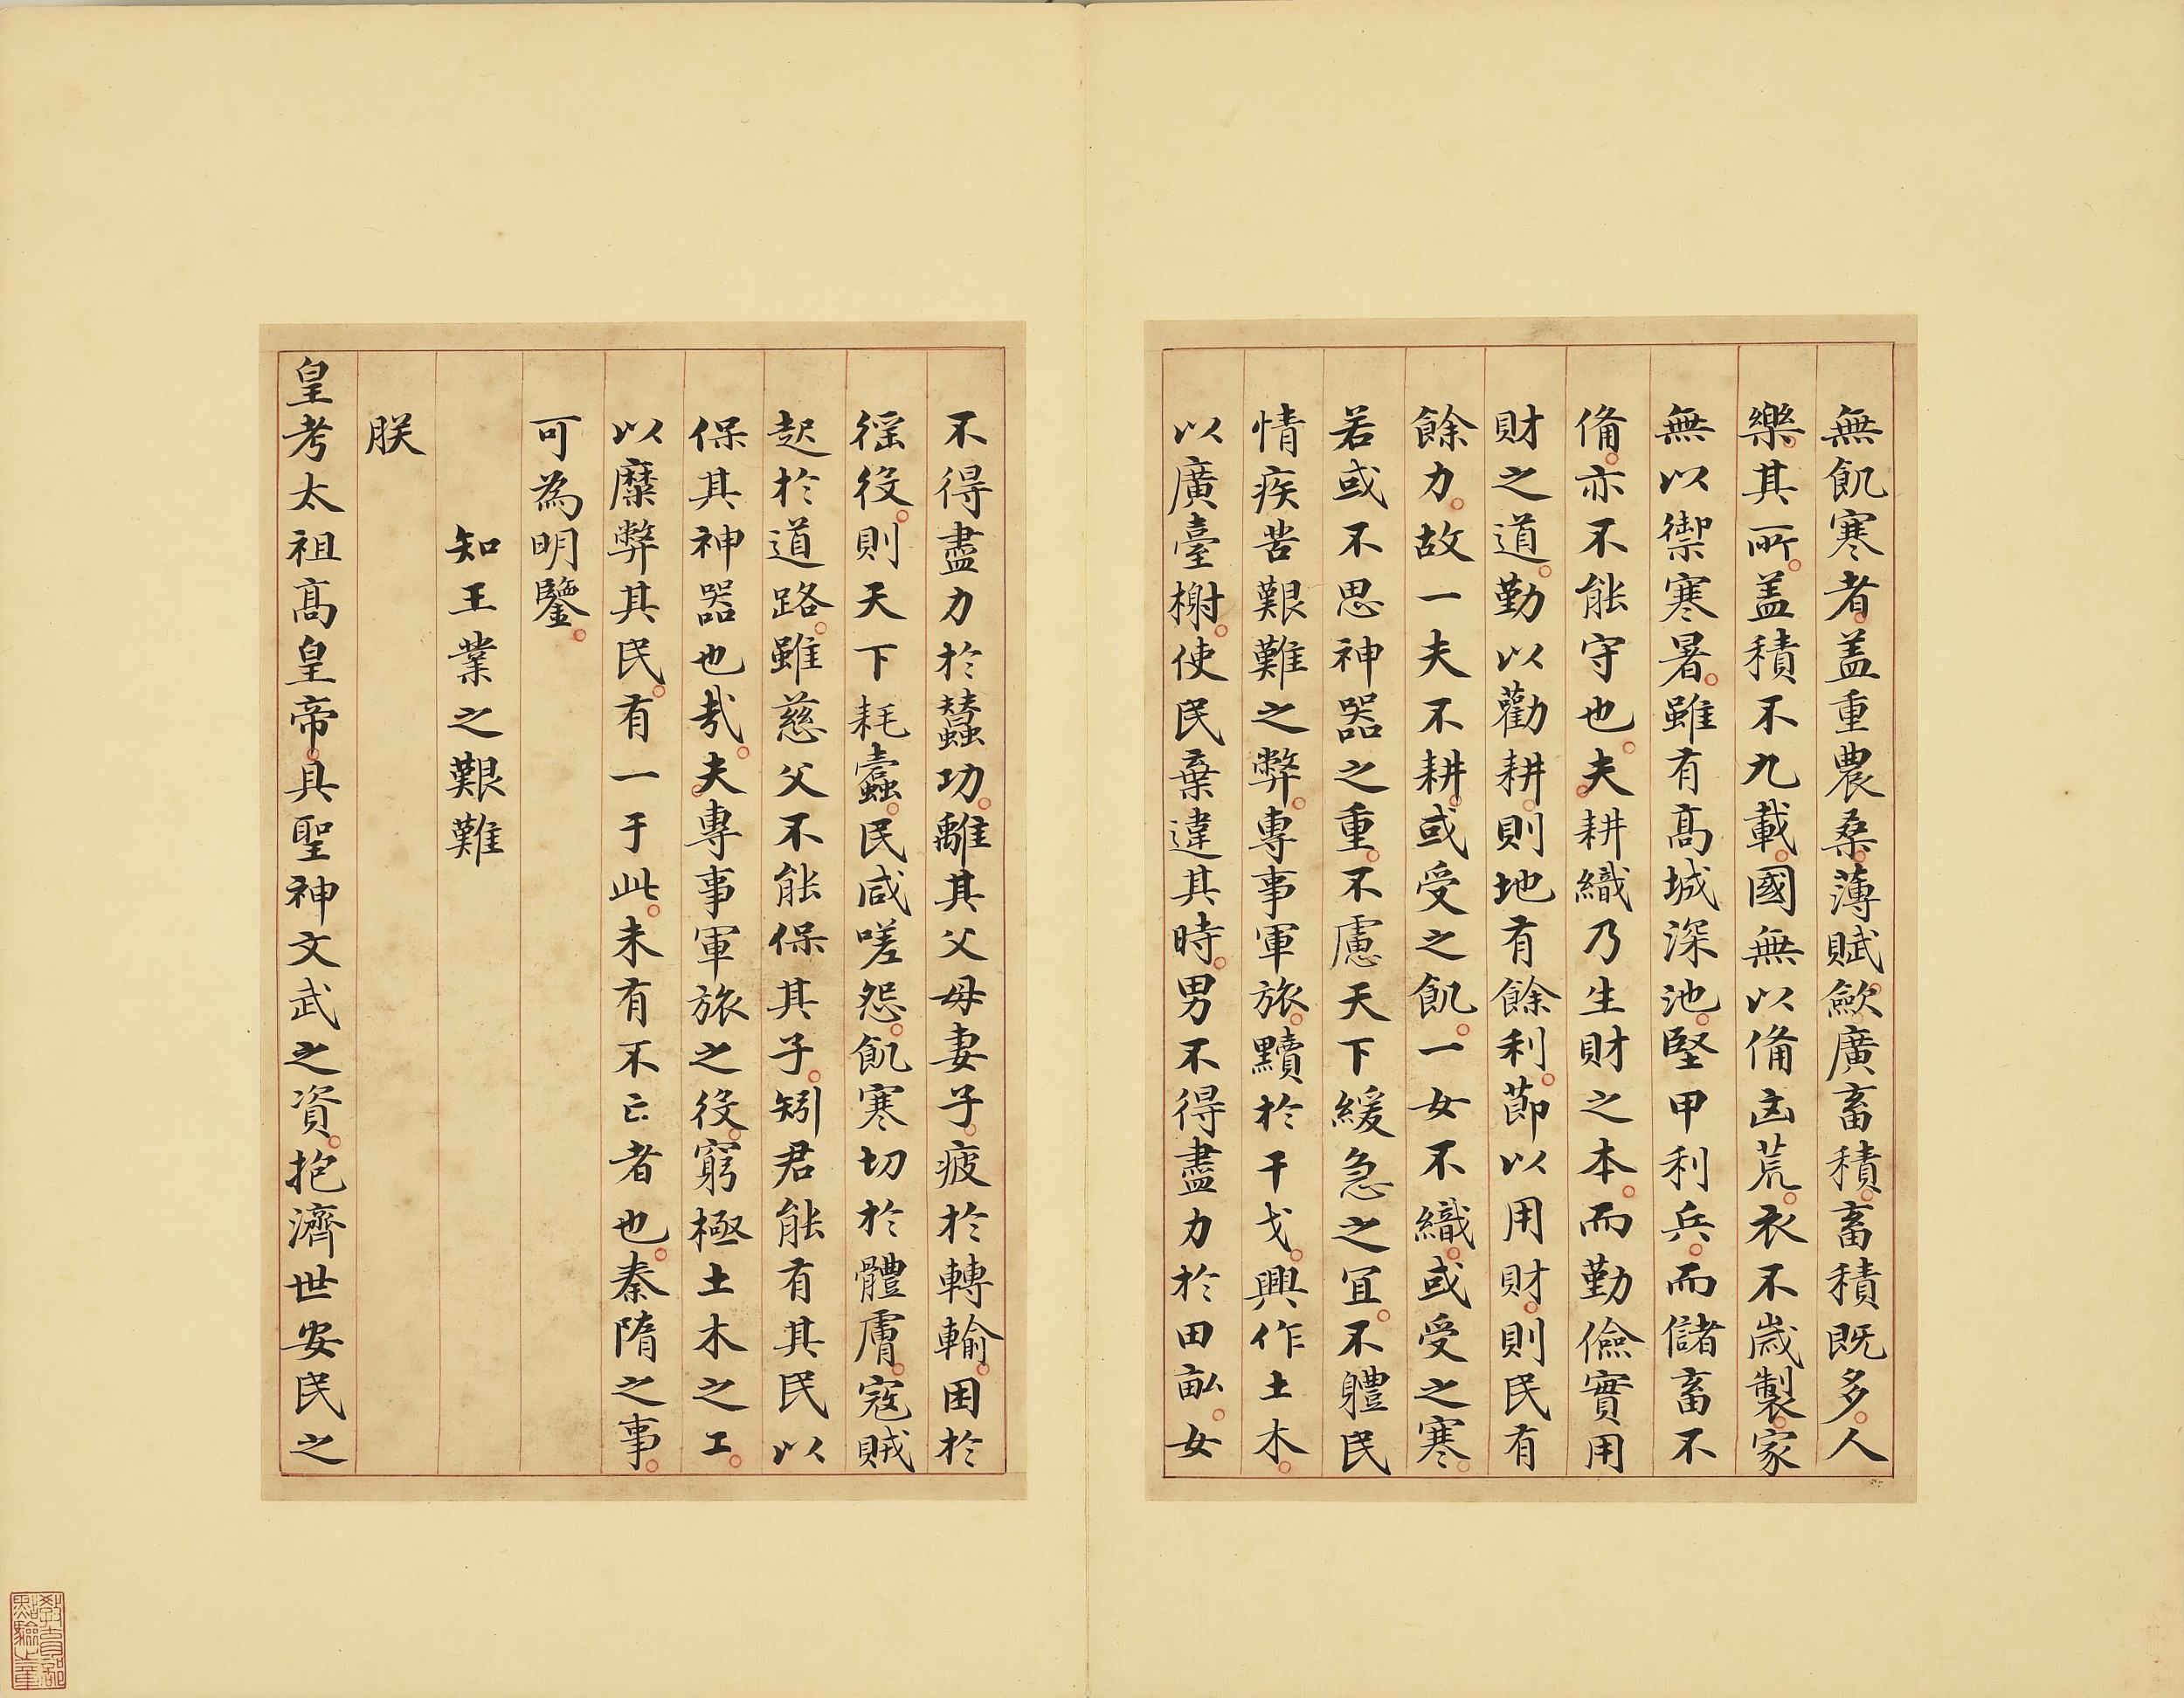 無飢寒者盖重農桑薄賦歛廣畜積畜積既多人
樂其所盖積不九載國無以俻凶荒衣不歲製家
無以禦寒暑雖有髙城深池堅甲利兵而儲畜不
俻亦不能守也夫耕織乃生財之本而勤儉實用
財之道勤以勸耕則地有餘利莭以用財則民有
餘力故一夫不耕或受之飢一女不織或受之寒
若或不思神器之重不慮天下緩急之冝不體民
情疾苦艱難之弊專事軍旅黷於干戈興作土木
以廣臺榭使民棄違其時男不得盡力於田畝女
不得盡力於蠶功離其父母妻子疲於轉輸困於
徭役則天下耗蠧民咸嗟怨飢寒切於體膚寇賊
起於道路雖慈父不能保其子矧君能有其民以
保其神器也㢤夫專事軍旅之役窮極土木之工
以糜弊其民有一于此未有不亡者也秦隋之事
可為明鑒
知王業之艱難
朕
皇考太祖髙皇帝具聖神文武之資抱濟世安民之
教育部點驗之章